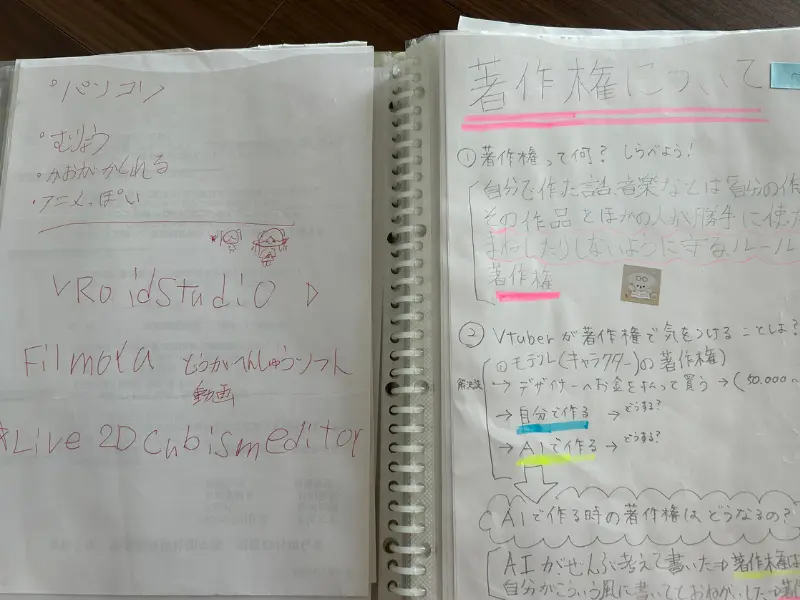 ・パソコン
・むりょう
・かおがかくれる
・アニメっぽい
VRoidStudio
Filmora どうがへんしゅうソフト
動画
Live2Dcubismeditor
著作権について
①著作権って何？ しらべよう！
自分で作た話、音楽などは「自分の作
その作品とほかの人が勝手に使た
まねしたりしないように守るルール
著作権
② Vtuberが著作権で気をつけることしよ？
①モデル(キャラクター)の著作権)
解決法
→デザイナーへお金を払って買う→(50.000〜
→自分で作る→どうする？
→AIで作る→どうする？
AIで作る時の著作権はどうなるの？
AIがぜんぶ考えて書いた→著作権は
自分がこういう風に書いてておねがいした→